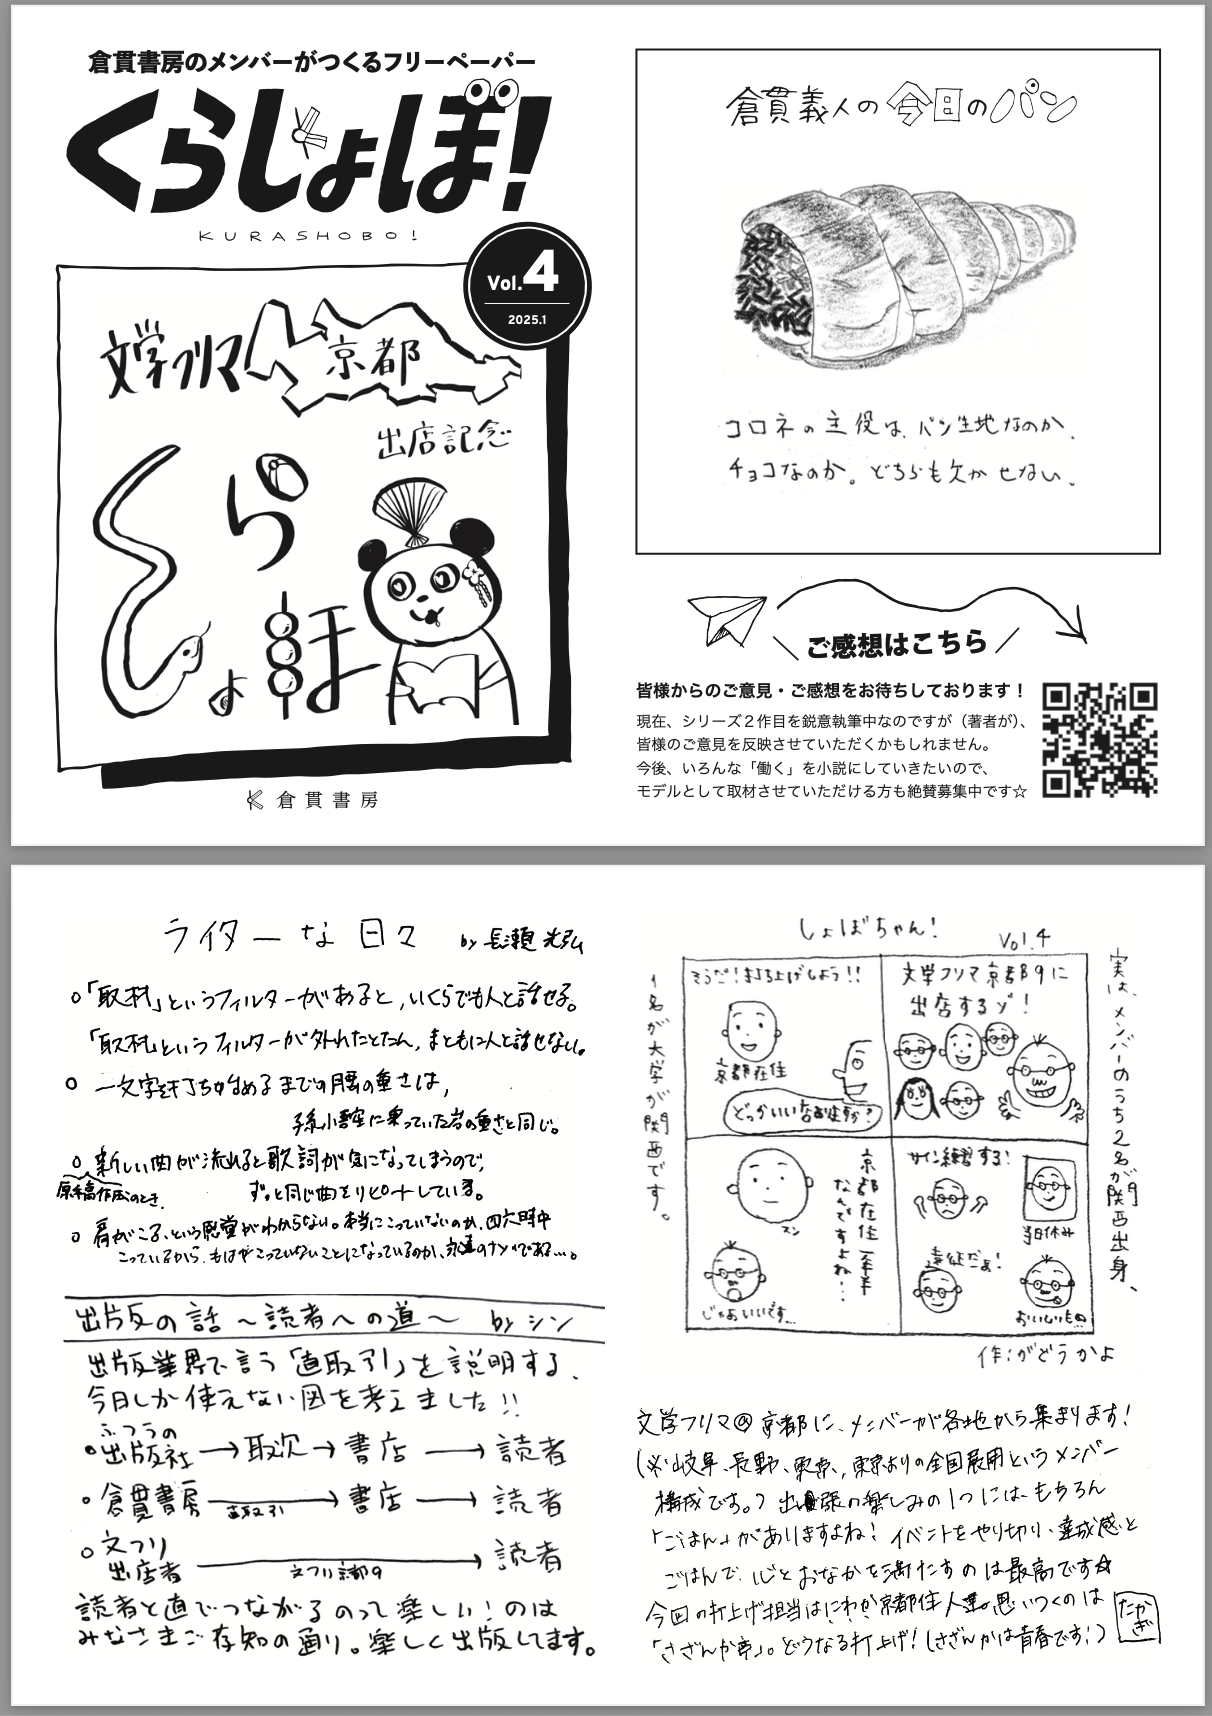 倉貫書房のメンバーがつくるフリーペーパー
くらしょぼ!
KURASHOBO!
Vol.4
2025.1
文学フリマ 京都
出店記念
くら
しょぼ
倉貫書房
倉貫義人の今日のパン
コロネの主役は、パン生地なのか、
チョコなのか。どちらも欠かせない。
ご感想はこちら
皆様からのご意見・ご感想をお待ちしております!
現在、シリーズ2作目を鋭意執筆中なのですが(著者が)、
皆様のご意見を反映させていただくかもしれません。
今後、いろんな「働く」を小説にしていきたいので、
モデルとして取材させていただける方も絶賛募集中です☆
ライターな日々 by 長瀬光弘
○「取材」というフィルターがあると、いくらでも人と話せる。
「取材」というフィルターが外れたとたん、まともに人と話せない。
○ 一文字を打ち始めるまでの腰の重さは、
孫悟空に乗っていた岩の重さと同じ。
○ 新しい曲が流れると歌詞が気になってしまうので、
原稿作成のとき
ずっと同じ曲をリピートしている。
○ 肩がこる、という感覚がわからない。本当にこっていないのか、四六時中
こっているから、もはやこっていないことになっているのか、永遠のナゾである…。
出版の話〜読者への道〜 by シン
出版業界で言う「直取引」を説明する、
今日しか使えない図を考えました!!
○ ふつうの
出版社→取次→書店→読者
○ 倉貫書房→書店→読者
直取引
○ 文フリ
出店者→読者
文フリ京都9
読者と直でつながるのって楽しい!のは
みなさまご存知の通り。楽しく出版してます。
しょぼちゃん! Vol.4
実は、メンバーのうち2名が関西出身、
文学フリマ京都9に
出店するゾ!
サイン練習する!
当日休み
遠征だぁ!
おいしいもの
そうだ!打ち上げしよう!!
京都在住
どっかいいお店知ってますか?
京都在住一年半
なんですよね…
スン
じゃあいいです…
1名が大学が関西です。
作:がどうかよ
文学フリマ@京都に、メンバーが各地から集まります!
(※岐阜、長野、東京、東京よりの全国展開というメンバー
構成です。) 出張の楽しみの1つには、もちろん
「ごはん」がありますよね! イベントをやり切り、達成感と
ごはんで、心とおなかを満たすのは最高です☆
今回の打上げ担当はにわか京都住人達。思いつくのは
「さざんか亭」。どうなる打上げ!(さざんかは青春です!)
たかぎ